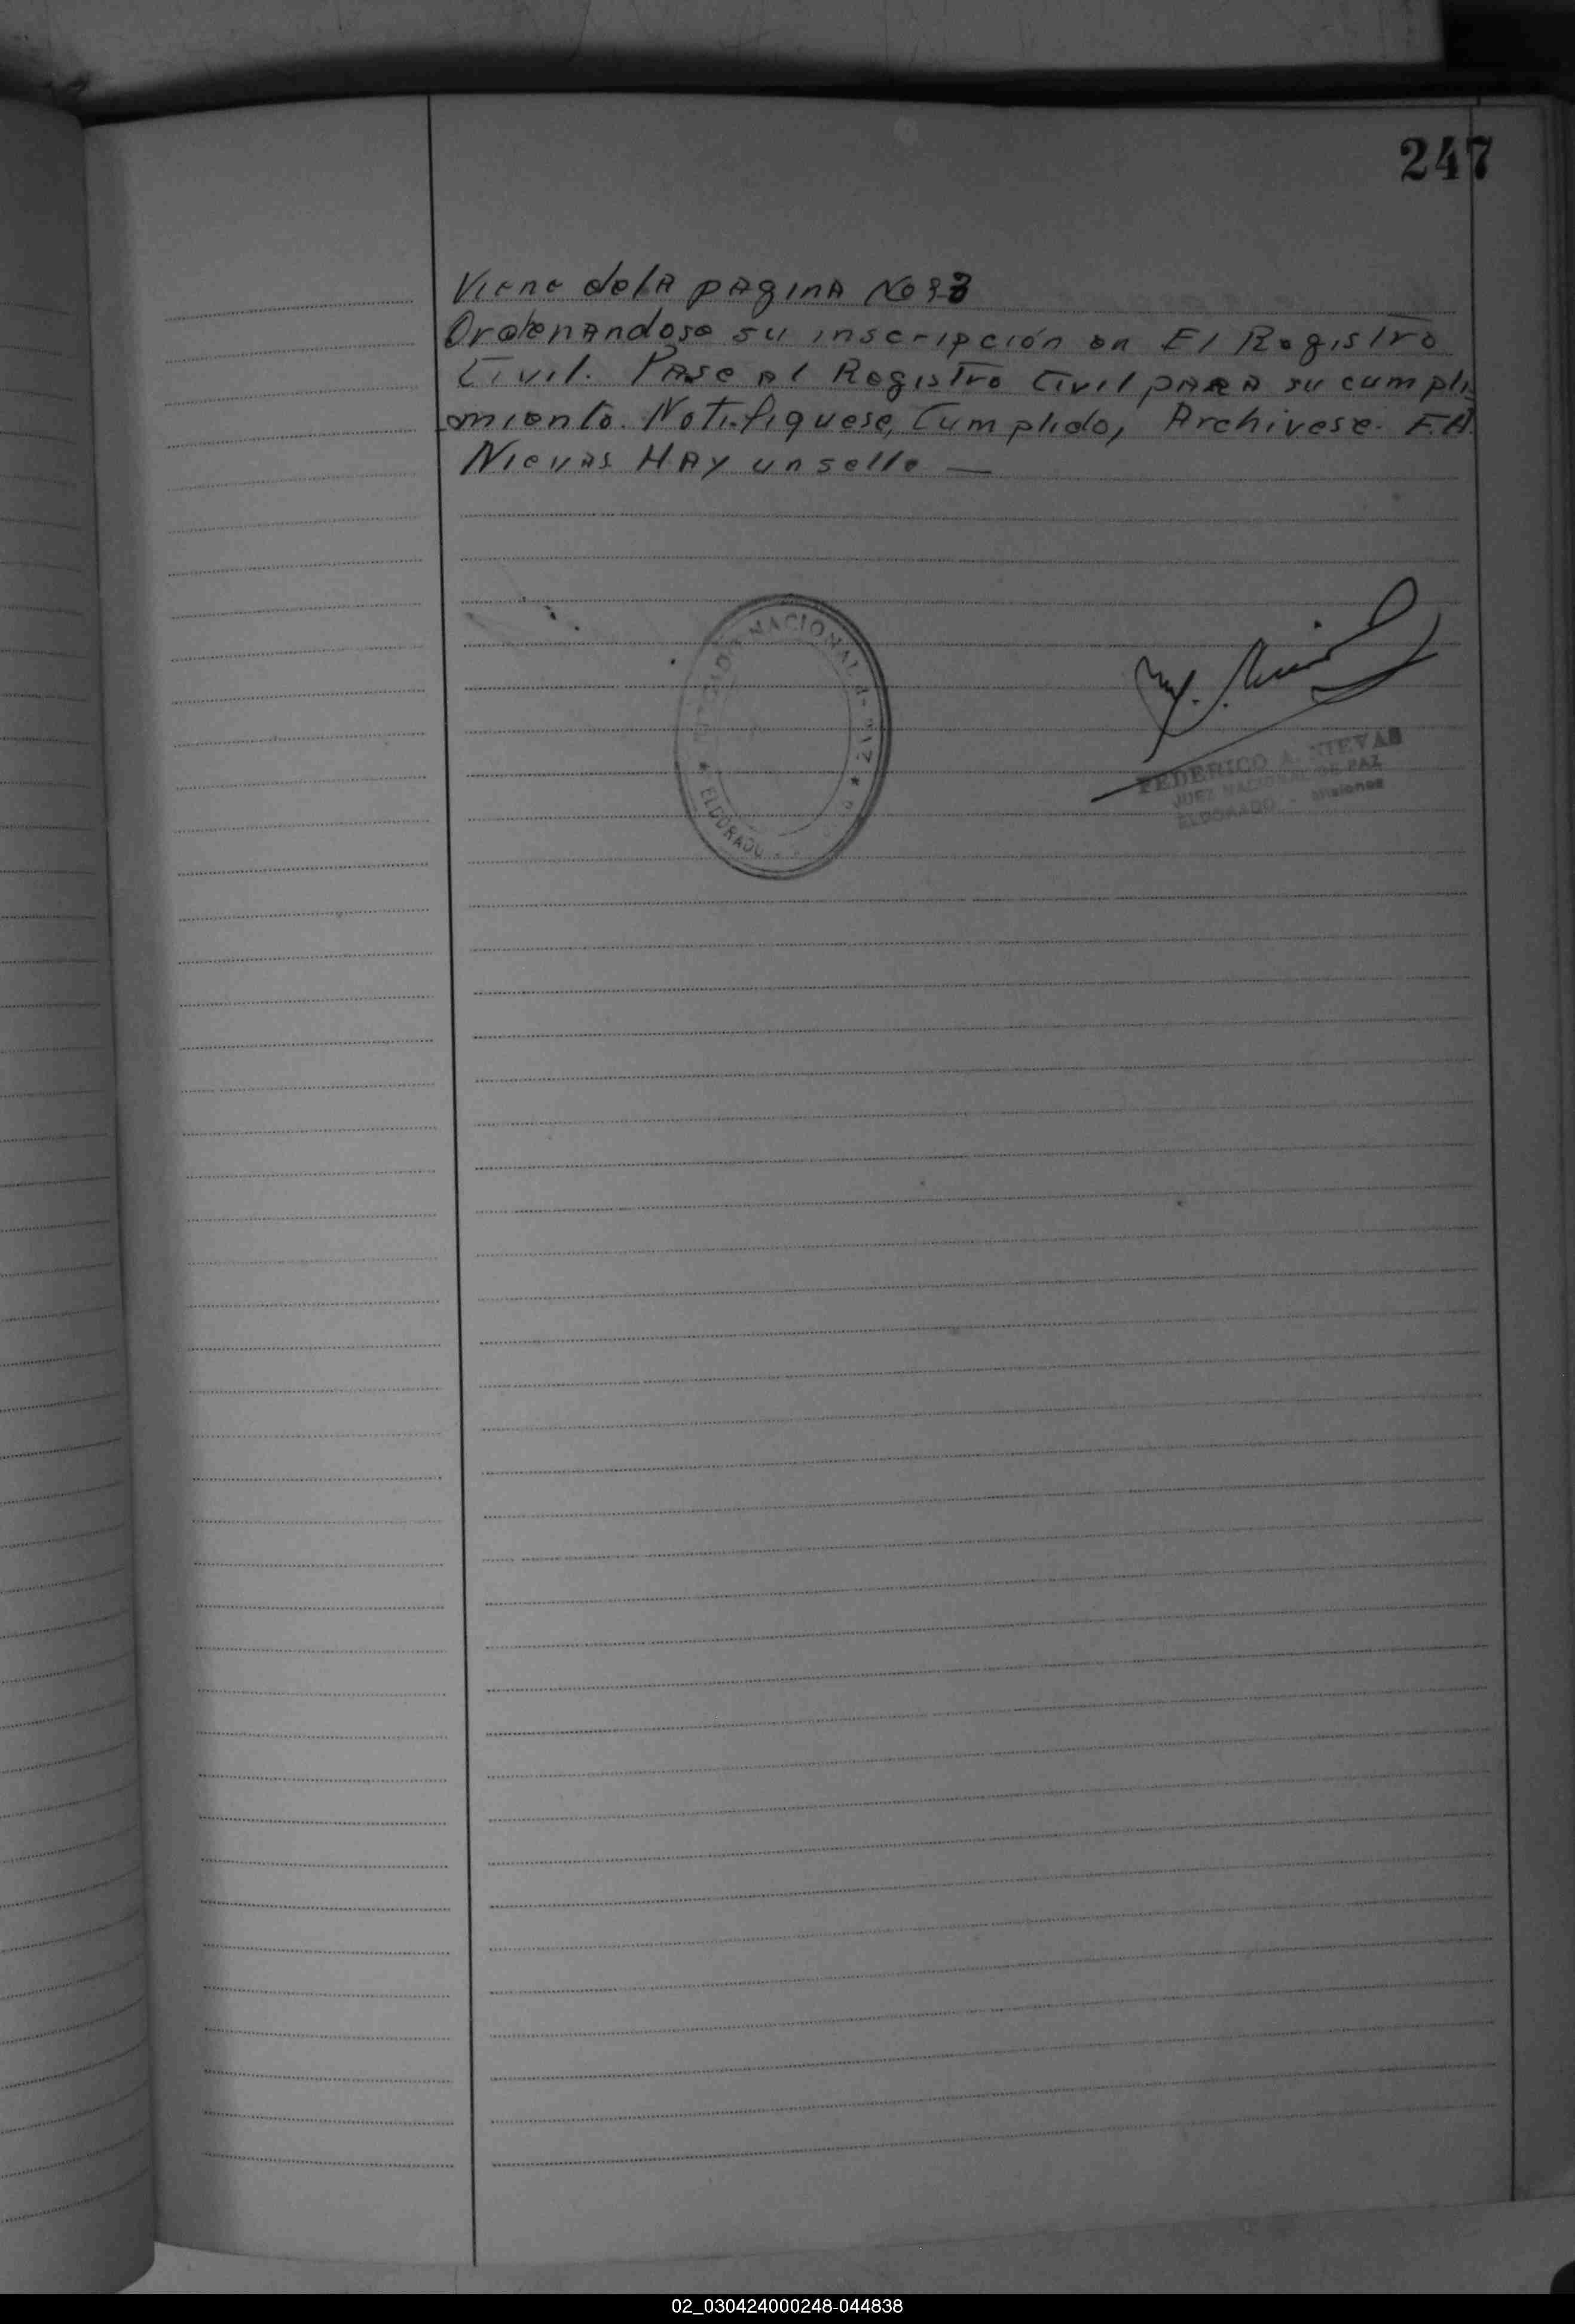 247
Viene de la pagina No 93
Ordenandose su inscripción en El Registro
Civil. Pase al Registro Civil para su cumpli-
miento. Notifiquese, Cumplido, Archivese. F.A.
Nievas HAY un sello —
NACIONAL
ELDORADO
FEDERICO A. NIEVAS
JUEZ NACIONAL DE PAZ
ELDORADO - Misiones
02_030424000248-044838